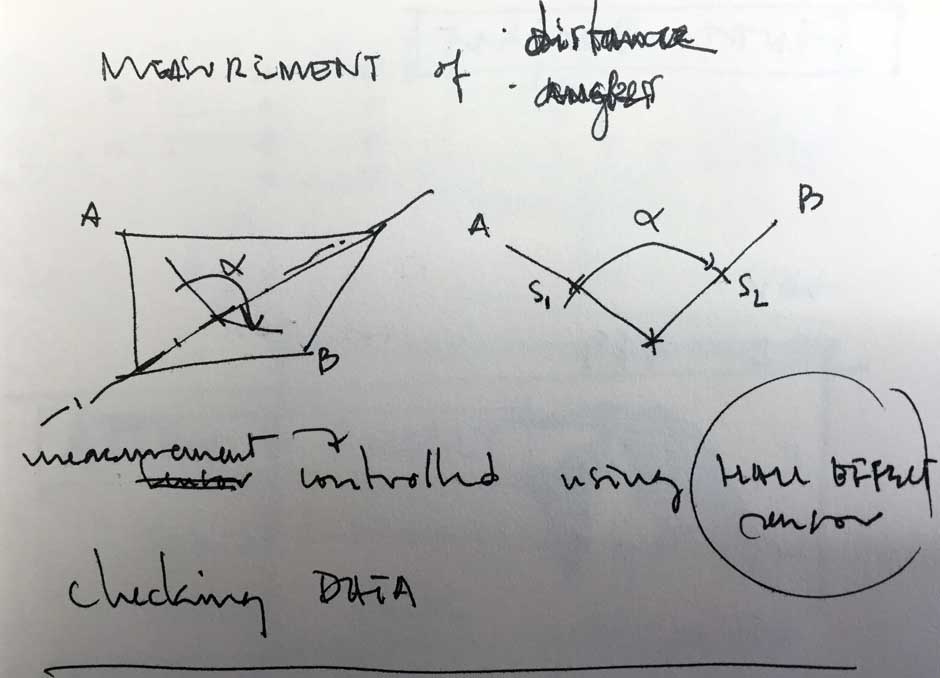 · distance
MEASUREMENT of · angles
A α B
A α B S1 S2
measurement controlled using HALL EFFECT
sensor
checking DATA